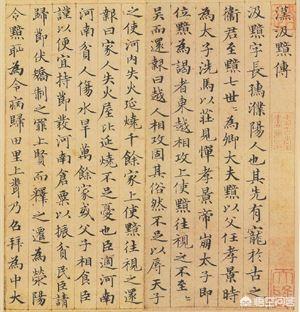 漢汲黯傳
汲黯字長孺濮陽人也其先有寵於古之
衛君至黯七世〻為卿大夫黯以父任孝景時
為太子洗馬以莊見憚孝景帝崩太子即
位黯為謁者東越相攻上使黯往視之不至〻
吳而還報曰越人相攻固其俗然不足以辱天子
之使河內失火延燒千餘家上使黯往視之還
報曰家人失火屋比延燒不足憂也臣過河南
河南貧人傷水旱萬餘家或父子相食臣
謹以便宜持節發河南倉粟以振貧民臣請
歸節伏矯制之罪上賢而釋之遷為滎陽
令黯恥為令病歸田里上聞乃召拜為中大
悟空问答